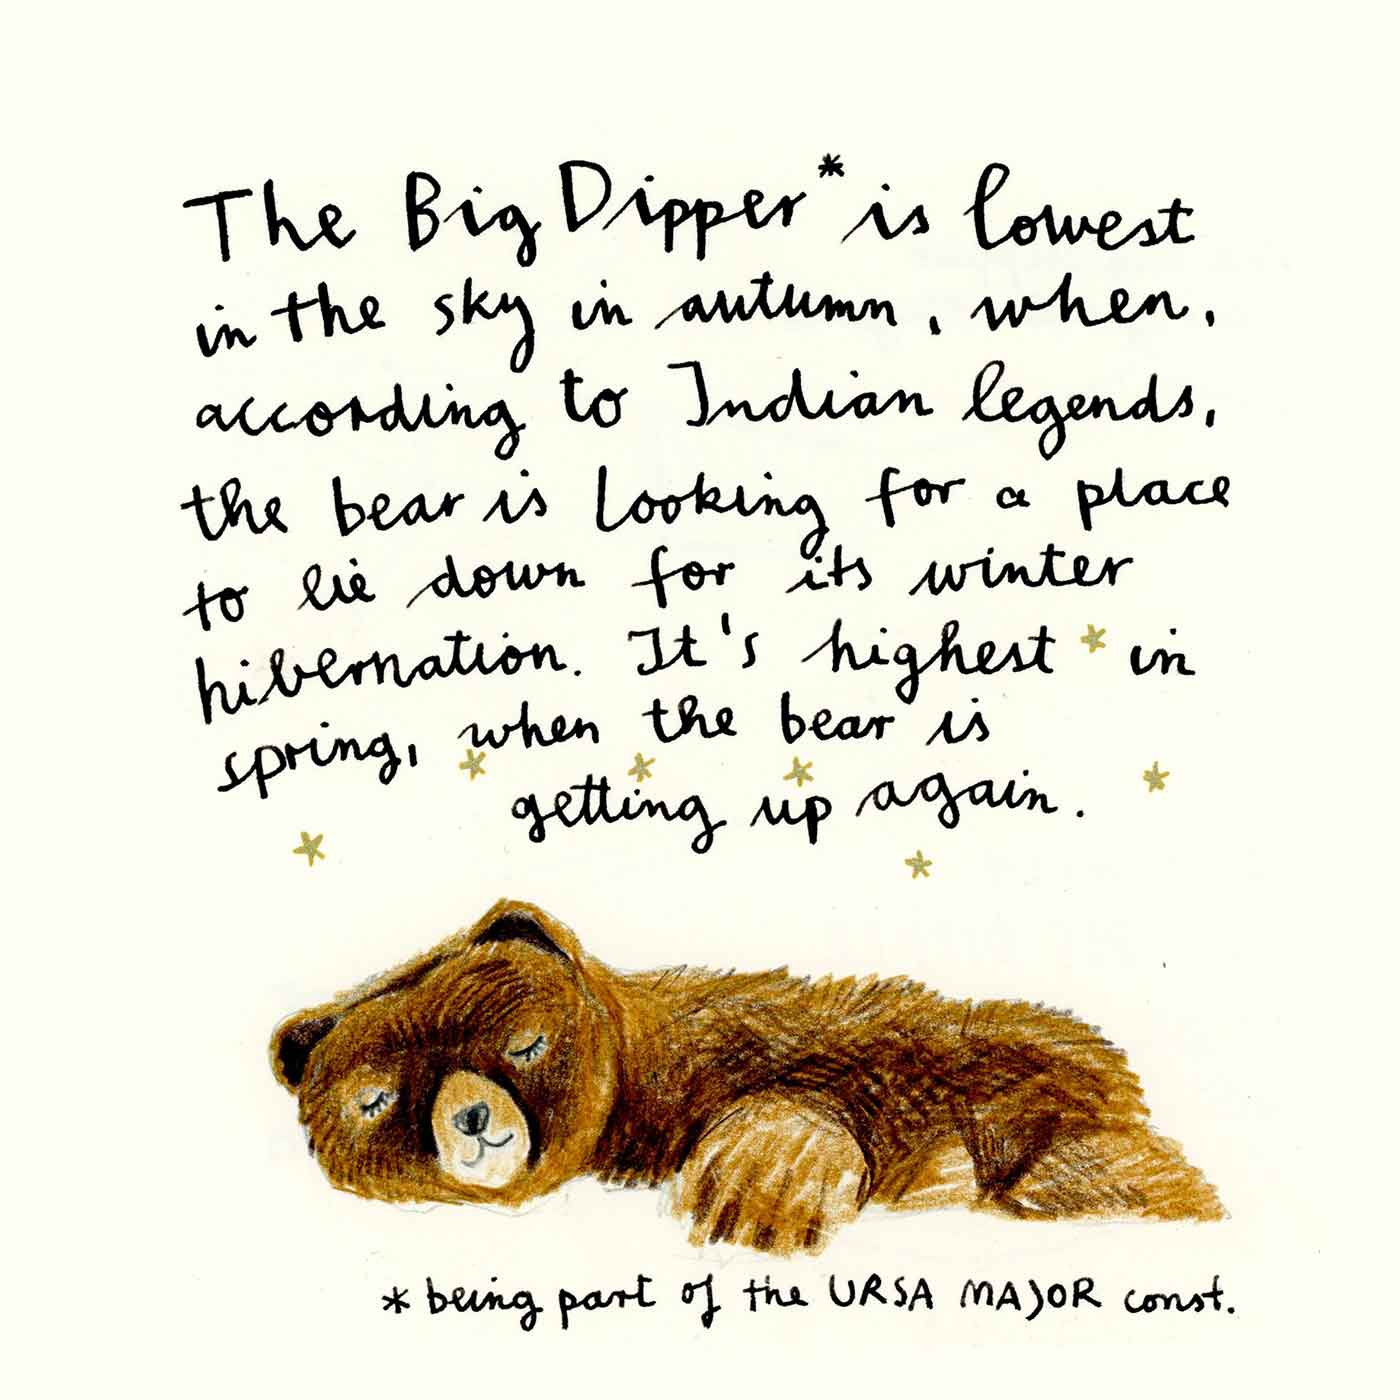 The Big Dipper* is lowest
in the sky in autumn, when,
according to Indian legends,
the bear is looking for a place
to lie down for its winter
hibernation. It's highest in
spring, when the bear is
getting up again.
* being part of the URSA MAJOR const.